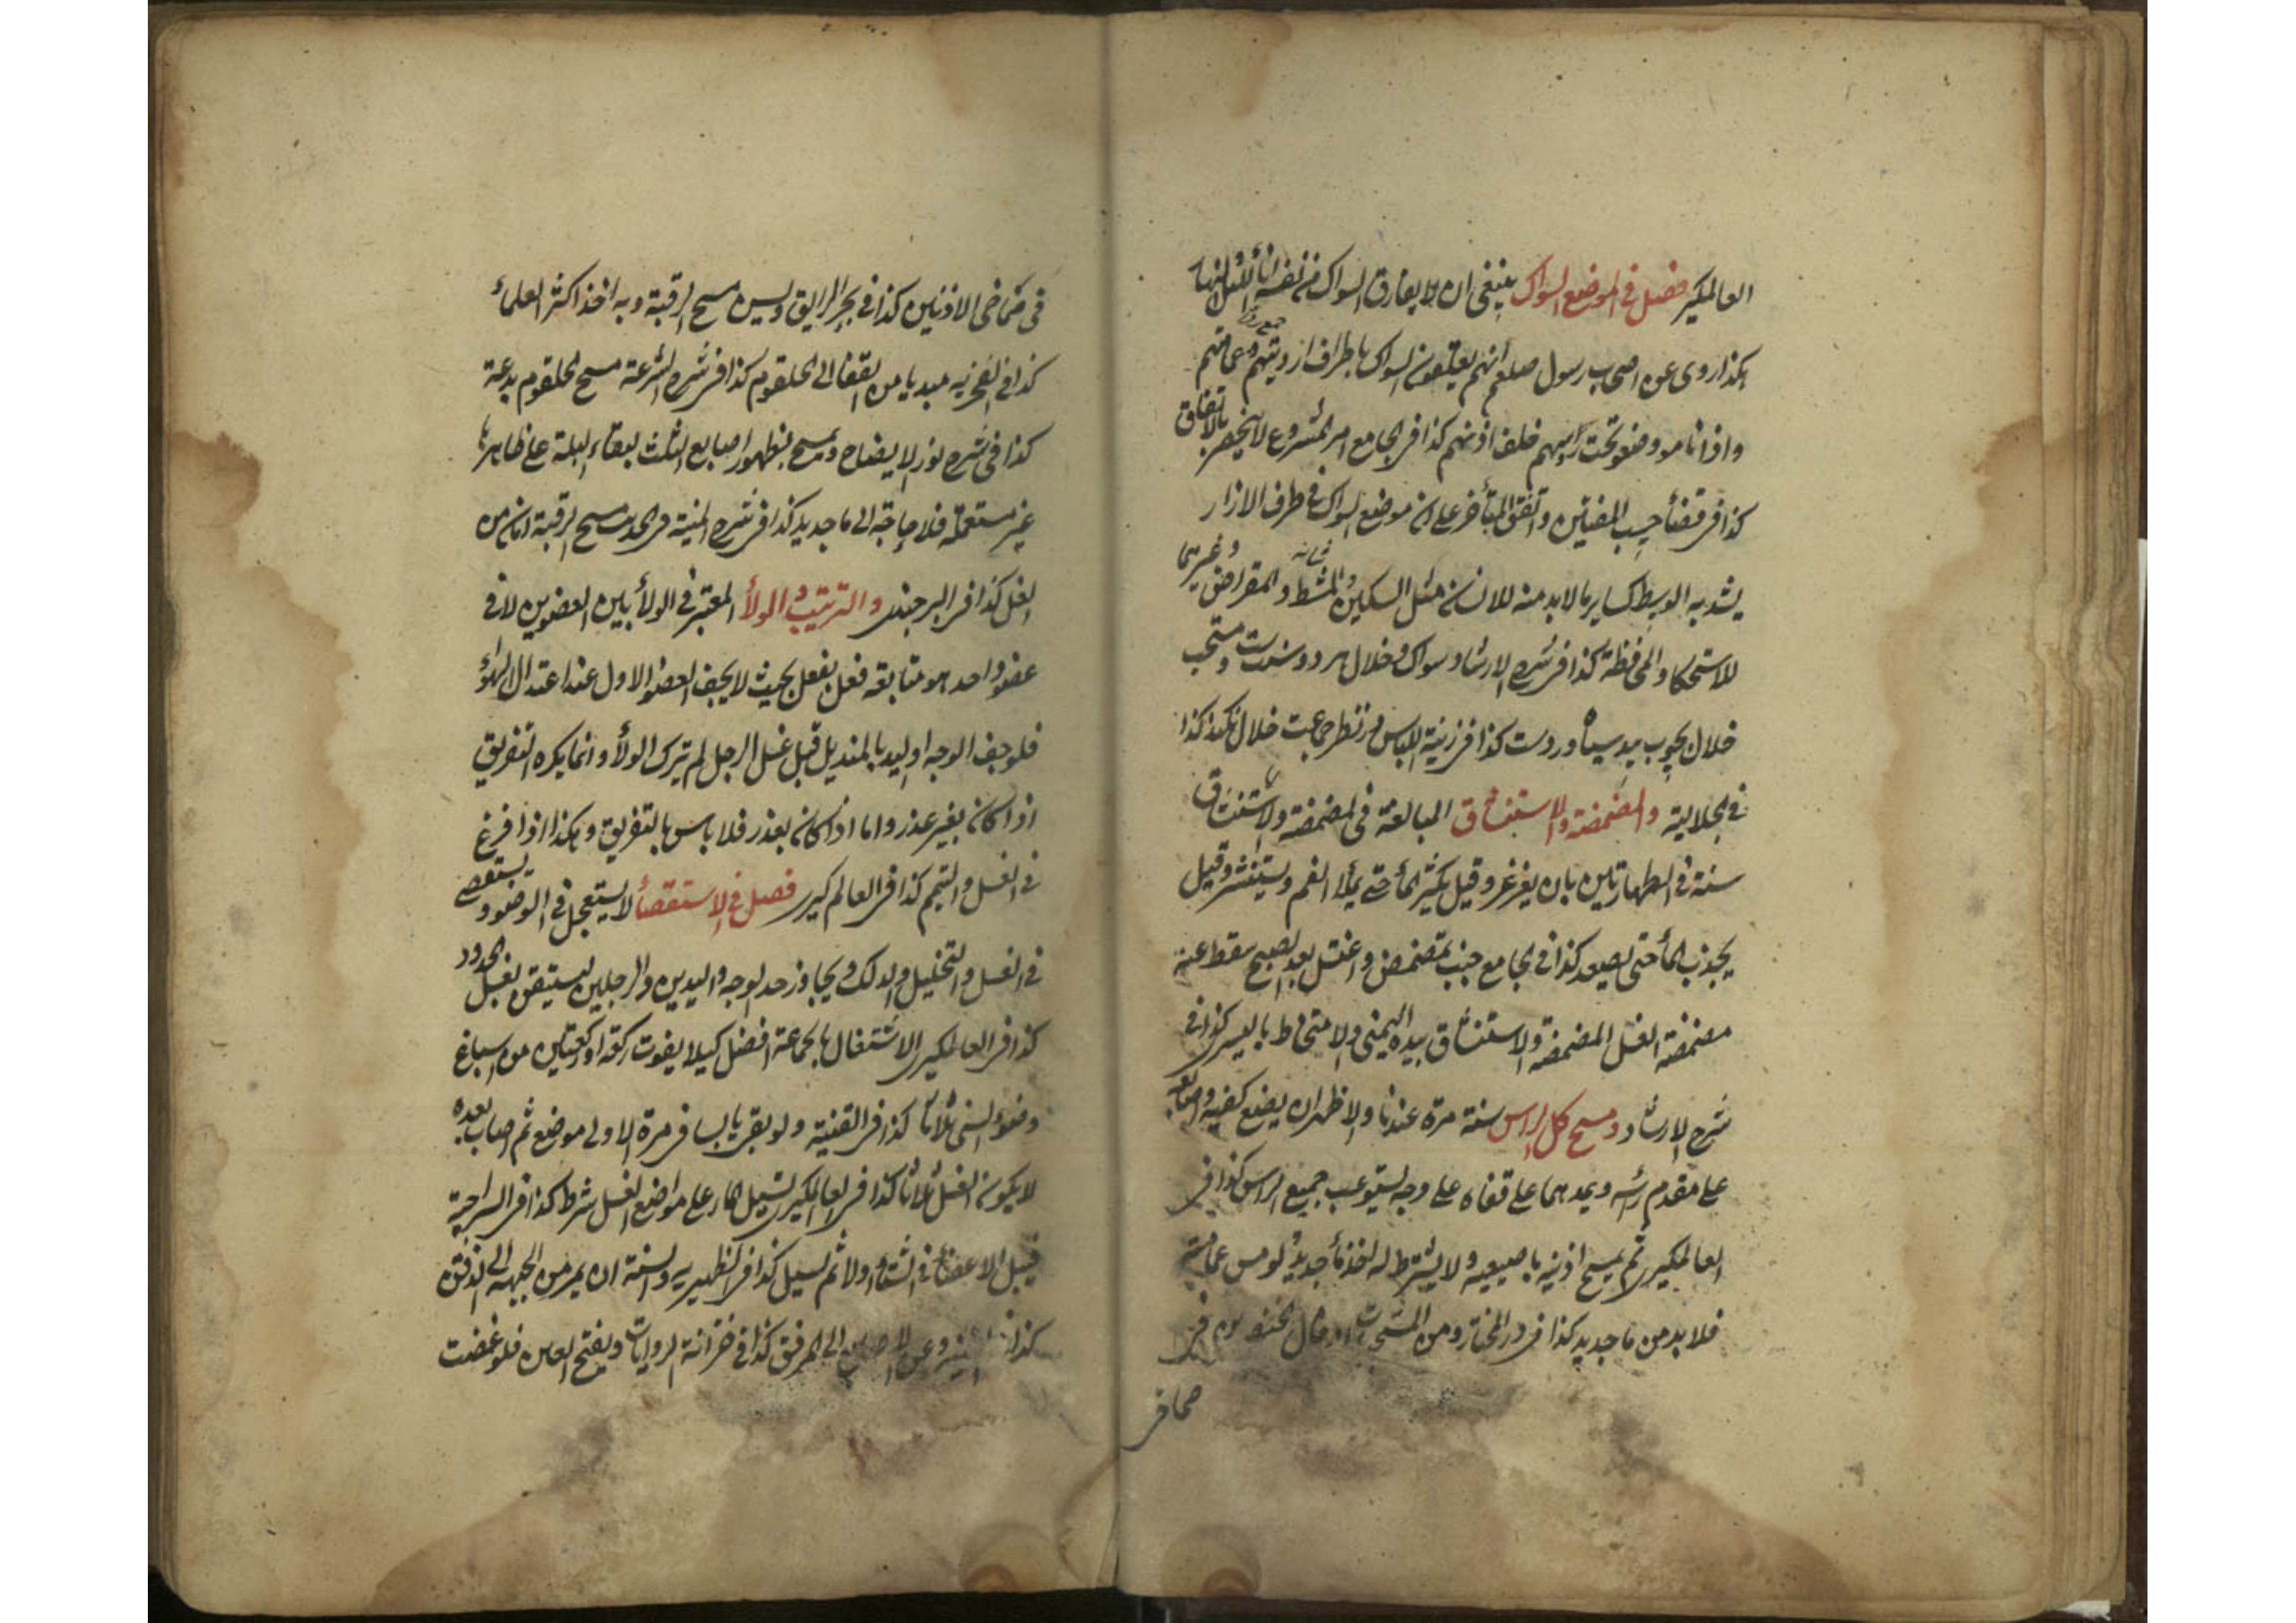 العالمكير فصل في الموضع السواك ينبغي ان لا يفارق السواك من نفسه اناء الليل والنهار
هكذا روى عن اصحاب رسول صلعم انهم يعلقون السواك باطراف ارديتهم وعمائمهم
واذا ناموا وضعو تحت رأسهم خلف اذنهم كذا في الجامع امر المشروع لا ينحصر بالاتفاق
كذا في قضأ حسب المفتين واتفق المتأخر على ان موضع السواك في طرف الازار
يشد به الوسط كساير ما لابد منه للانسان مثل السكين والمشط والمقراض وغيرهما
للاستحكام والمحافظة كذا في شرح الارشاد وسواك وخلال هر دو سنت ومستحب
خلال بچوب بيد سياه ورد است كذا في زينة اللباس در نظر جماعت خلال نكند كذا
في الجلالية والمضمضة والاستنشاق المبالغة في المضمضة والاستنشاق
سنة في الطهارتين بان يغرغر وقيل يكثر المأ حتى يملأ الفم ويستنشر وقيل
يجذب المأ حتى يصعد كذا في الجامع جنب تمضمض واغتسل بعد الصبح سقط عنه
مضمضة الغسل المضمضة والاستنشاق بيده اليمنى والامتخاط باليسرى كذا في
شرح الارشاد ومسح كل الراس سنة مرة عندنا والاظهر ان يضع كفيه واصابعه
على مقدم رأسه ويمدهما على قفاه على وجه يستوعب جميع الراس كذا في
العالمكيرى ثم يمسح اذنيه باصبعيه ولا يشترط له اخذ مأ جديد ولو مس عمامته
فلابد من ما جديد كذا في در المختار ومن المستحبات ادخال خنصريه في
صماخي
في صماخي الاذنين كذا في بحر الرايق وليس مسح الرقبة وبه اخذ اكثر العلماء
كذا في الفخريه مبديا من القفا الى الحلقوم كذا في شرح الشرعة مسح الحلقوم بدعة
كذا في شرح نور الايضاح ويمسح بظهور اصابع الثلث لبقاء البلة على ظاهرها
غير مستعملة فلا حاجة الى ما جديد كذا في شرح المنية في الحديث مسح الرقبة امان من
الغل كذا في البرجندى والترتيب والولأ المعتبر في الولأ بين العضوين لا في
عضو واحد هو متابعة فعل بفعل بحيث لا يجف العضو الاول عند اعتدال الهواء
فلو جفف الوجه او اليد بالمنديل قبل غسل الرجل لم يترك الولأ وانما يكره التفريق
اذا كان بغير عذر واما اذا كان بعذر فلا باس بالتفريق وهكذا اذا فرغ
في الغسل والتيمم كذا في العالمكيرى فصل في الاستقصأ لا يستعجل في الوضوء ويستقصى
في الغسل والتخليل والدلك ويجاوز حد الوجه واليدين والرجلين ليستيقن بغسل الحدود
كذا في العالمكيرى الاشتغال بالجماعة افضل كيلا يفوت ركعة او ركعتين من اسباغ
وضوء السنى ثلاثا كذا في القنية ولو بقى يابسا في مرة الاولى موضع ثم اصاب بعده
لا يكون الغسل ثلاثا كذا في العالمكيرى تسيل الماء على مواضع الغسل شرط كذا في السراجية
قبل الاعضأ في الشتاء اولا ثم تسيل كذا في الظهيريه والسنة ان يمر من الجبهة الى الذقن
كذا في وعن الاصابع الى المرفق كذا في خزانة الروايات ويفتح العين فلو غمضت